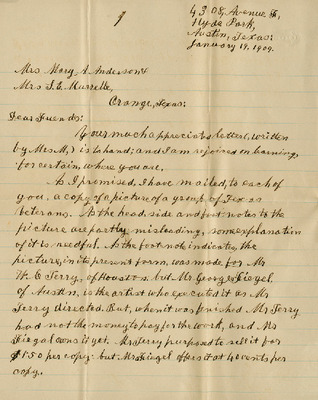 4308, Avenue H,
Hyde Park,
Austin, Texas;
January 19, 1909.
Mrs Mary A. Anderson &
Mrs J. E. Murrelle,
Orange, Texas:
Dear Friends:
Your much appreciated letter, written
by Mrs M, is to hand; and I am rejoiced on learning,
for certain, where you are.
As I promised, I have mailed, to each of
you, a copy of a picture of a group of Texas
veterans. As the head, side and foot notes to the
picture are partly misleading, some explanation
of it is needful. As the foot note indicates, the
picture, in its present form, was made for Mr
Terry, of Houston. but Mr. George
of Austin, is the artist who executed it as Mr
Terry directed. But, when it was finished Mr Terry
had not the money to pay for the work, and Mr
owns it yet. Mr Terry purposed to sell it for
$1.50 per copy: but Mr offers it at 40 cents per
copy.